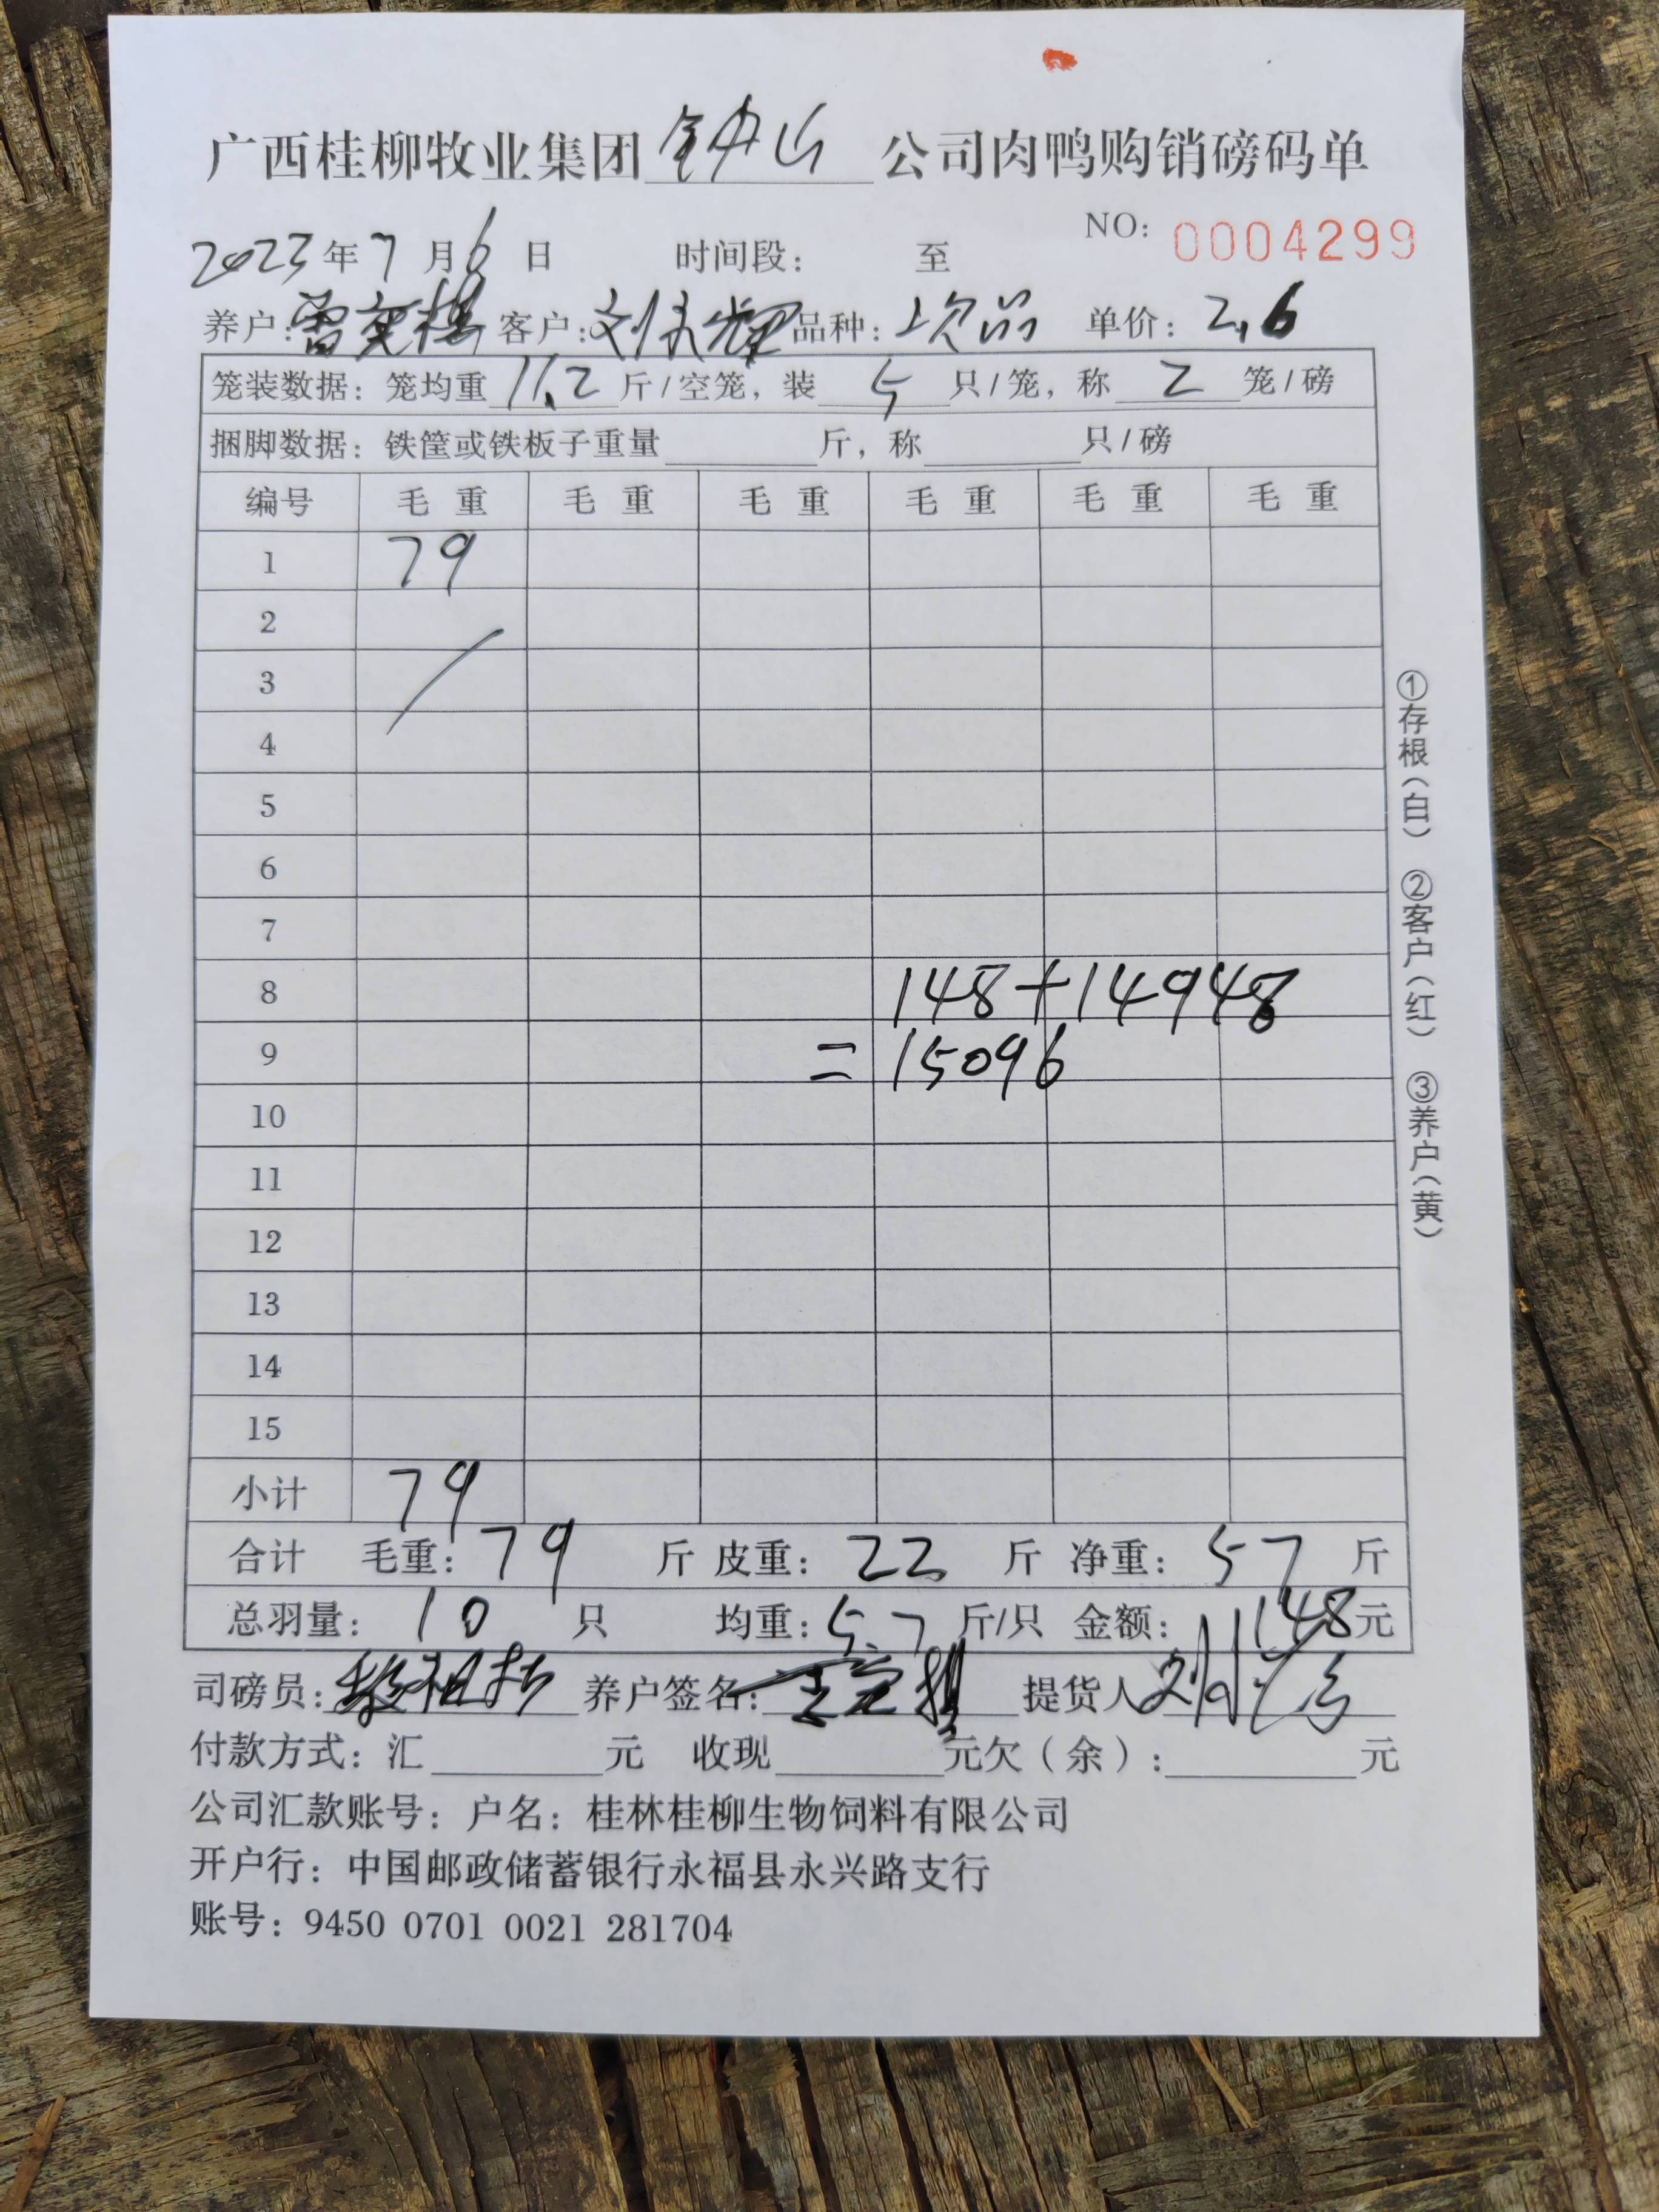 广西桂柳牧业集团 钟山 公司肉鸭购销磅码单
NO: 0004299
2023年7月6日 时间段: 至
养户: 客户:刘永辉 品种:次品 单价:2.6
笼装数据:笼均重11.2斤/空笼,装5只/笼,称2笼/磅
捆脚数据:铁筐或铁板子重量 斤,称 只/磅
编号 毛重 毛重 毛重 毛重 毛重 毛重
1 79
2
3
4
5
6
7
8 148+14948
9 =15096
10
11
12
13
14
15
小计 79
合计 毛重:79 斤 皮重:22 斤 净重:57 斤
总羽量:10 只 均重:5.7 斤/只 金额:148元
司磅员: 养户签名: 提货人
付款方式:汇 元 收现 元欠(余): 元
公司汇款账号:户名:桂林桂柳生物饲料有限公司
开户行:中国邮政储蓄银行永福县永兴路支行
账号:9450 0701 0021 281704
①存根(白) ②客户(红) ③养户(黄)